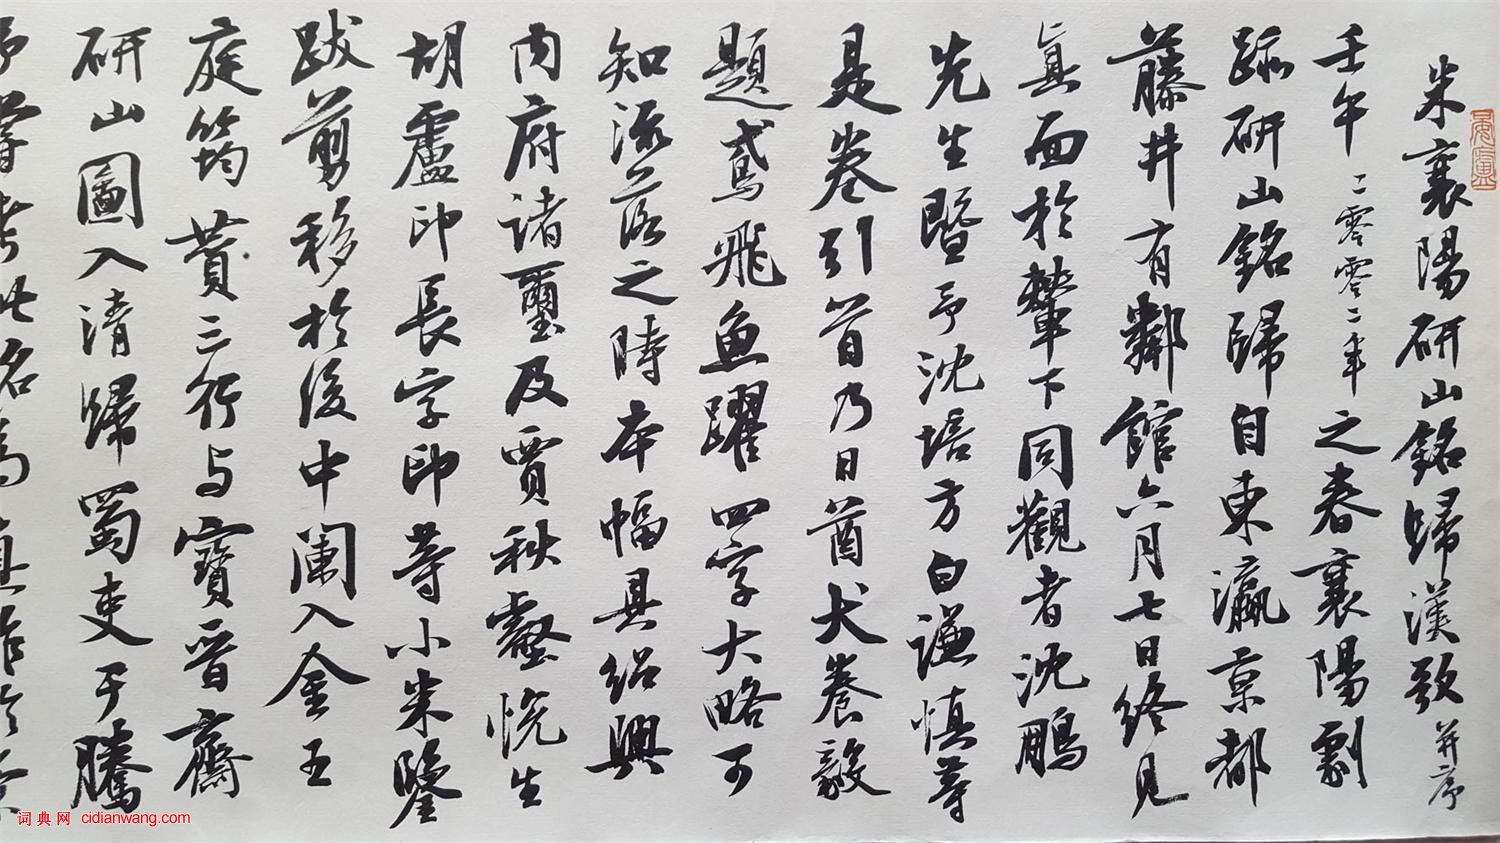 米襄陽研山銘歸漢歌并序
壬午二零零二年之春襄陽劇
跡研山銘歸自東瀛京都
藤井有鄰館六月七日終見
真面於輦下同觀者沈鵬
先生暨予沈培方白謙慎等
是卷引首乃日酋犬養毅
題鳶飛魚躍四字大略可
知流落之時本幅具紹興
内府諸璽及賈秋壑悅生
胡盧印長字印等小米鑒
跋剪移於後中闌入金王
庭筠贊三行与寶晉齋
研山圖入清歸蜀吏于騰
词典网 cidianwang.com